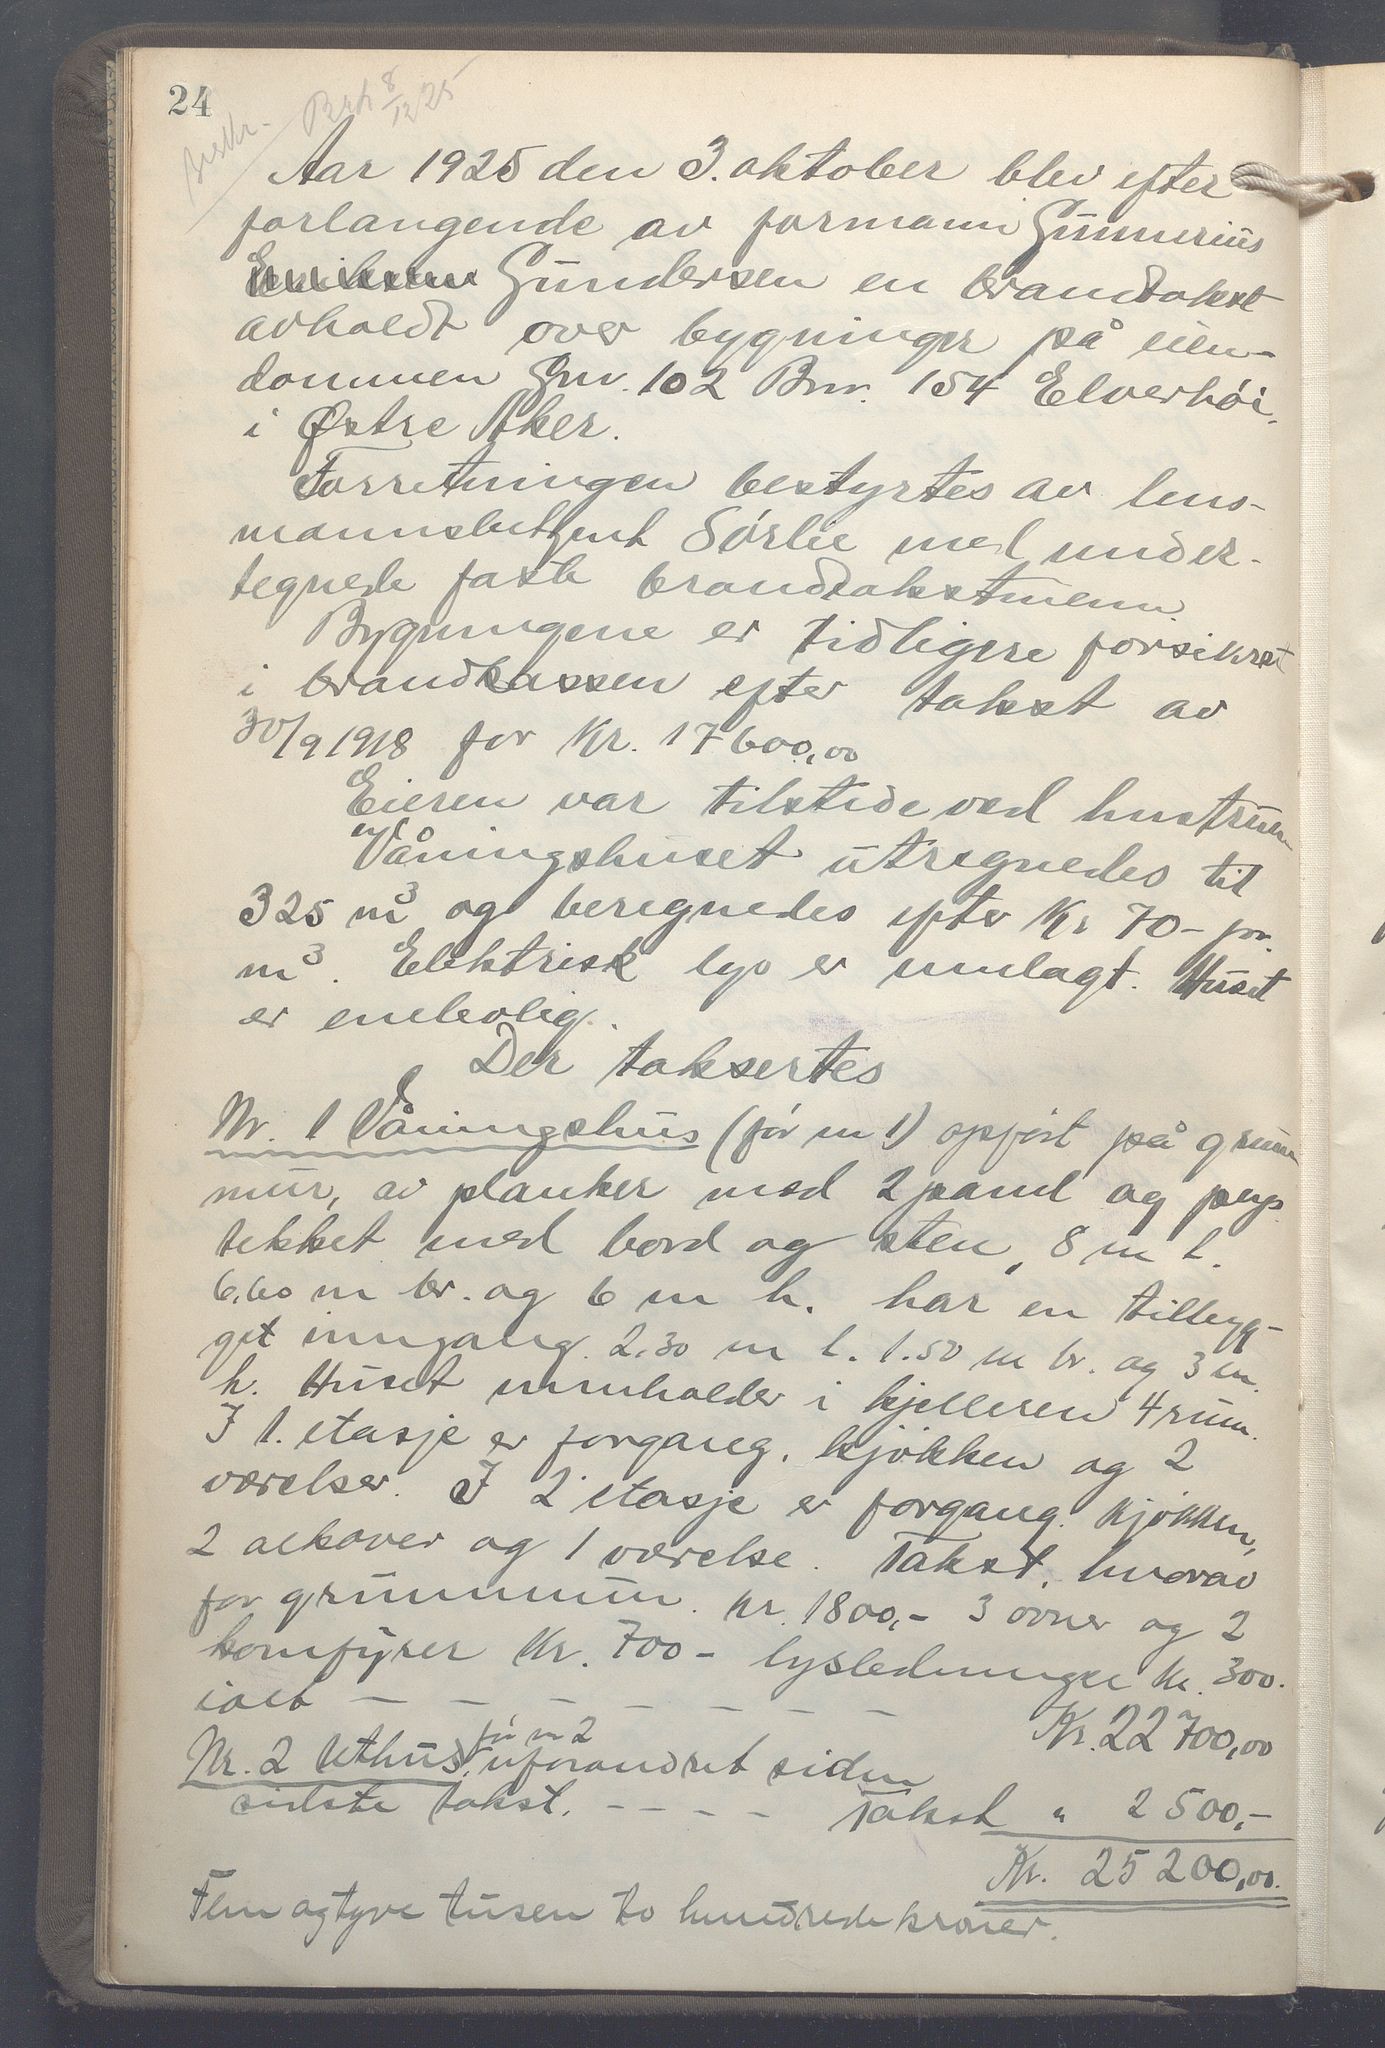 24
Beskr. Brk 8/12 25
Aar 1925 den 3. oktober blev efter
forlangende av formann Gunnerius
Gundersen en brandtakst
avholdt over bygninger på eien-
dommen Gnr. 102 Bnr. 154 Elverhöi,
i Østre Aker.
Forretningen bestyrtes av lens-
mannsbetjent Sörlie med under-
tegnede faste brandtakstmenn
Bygningene er tidligere forsikret
i brandkassen efter takst av
30/9 1918 for Kr. 17600,00
Eieren var tilstede ved hustruen
Våningshuset utregnedes til
325 m3 og beregnedes efter Kr 70- pr.
m3. Elektrisk lys er innlagt. Huset
er enebolig.
Der taksertes
Nr. 1 Våningshus (för nr 1) opfört på grunn
mur, av planker med 2 panel og papp
tekket med bord og sten, 8 m l.
6,60 m br. og 6 m h. har en tilbyg-
get inngang 2,30 m l. 1.50 m br. og 3 m.
h. Huset innholder i kjelleren 4 rum.
I 1. etasje er forgang, kjökken og 2
værelser. I 2 etasje er forgang, kjökken,
2 alkover og 1 værelse. Takst, hvorav
for grunnmur. Kr. 1800,- 3 ovner og 2
komfyrer Kr. 700- lysledninger Kr. 300.
ialt - - - - - - - Kr. 22 700,00
för nr 2
Nr. 2 Uthus, uforandret siden
sidste takst. - - - - Takst " 2 500,-
Kr. 25 200,00.
Fem og tyve tusen to hundrede kroner.